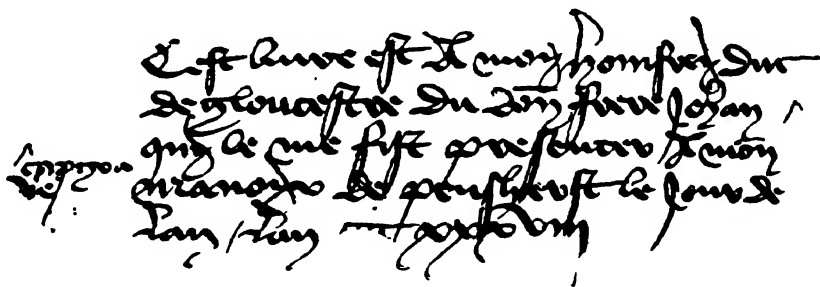 Cest livre est A moy homfrey duc
de gloucestre du don frere Johan ^
quy le me fist presenter A mon
^capgra
ve
manoyr de pensherst le Jour de
lan / lan xxxviii